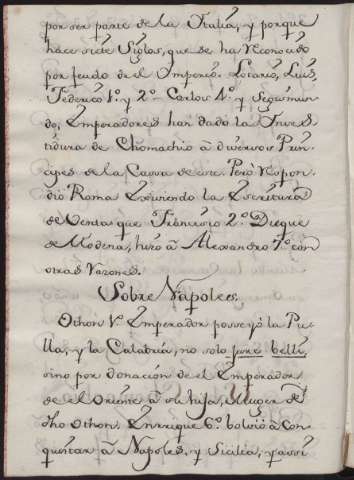 por ser parte de la Italia, y porque
hace siete Siglos, que se ha reconocido
por feudo de el Imperio. Lotario, Luis,
Federico 1º. y 2º. Carlos 4º. y Segismun-
do, Emperadores han dado la Inves-
tidura de Comachio a diversos Prin-
cipes de la Cassa de este. Però respon-
diò Roma exiviendo la Escritura
de Venta que Francisco 2º. Duque
de Modena, hizo à Alexandro 7º. con
otras Razones.
Sobre Napoles.
Othon 1º. Emperador posseyò la Pu-
lla, y la Calabria, no solo jure belli,
sino por donacion de el Emperador
de el oriente à su hija, Muger de
dho Othon. Enrrique 6º. bolviò à con-
quistar à Napoles, y Sicilia, y assi